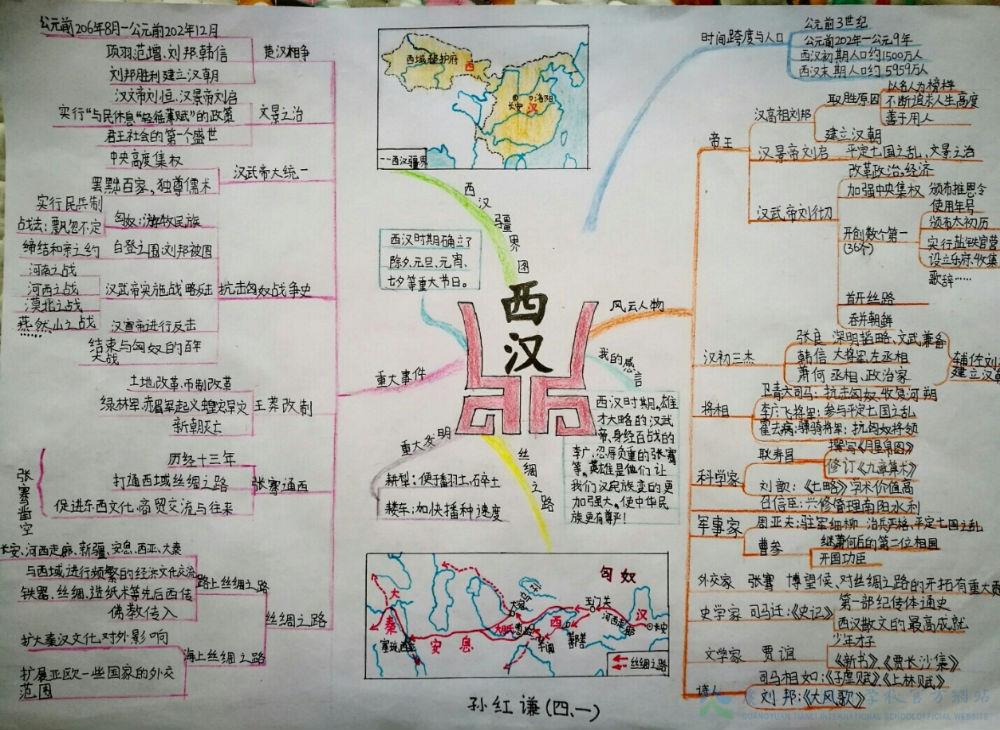 公元前206年8月-公元前202年12月
项羽.范增.刘邦.韩信
刘邦胜利建立汉朝
楚汉相争
汉文帝刘恒.汉景帝刘启
实行"与民休息""轻徭薄赋"的政策
君王社会的第一个盛世
文景之治
中央高度集权
罢黜百家、独尊儒术
汉武帝大统一
实行民兵制
战法:飘忽不定
匈奴:游牧民族
缔结和亲之约
白登之围:刘邦被围
河南之战
河西之战
漠北之战
汉武帝实施战略反击
燕然山之战
汉宣帝进行反击
结束与匈奴的百年
大战
抗击匈奴战争史
土地改革.币制改革
绿林军.赤眉军起义.蝗灾旱灾
新朝灭亡
王莽改制
张骞凿空
历经十三年
打通西域丝绸之路
促进东西文化.商贸交流与往来
张骞通西
长安、河西走廊、新疆、安息、西亚、大秦
与西域进行频繁的经济文化交流
铁器、丝绸、造纸术等先后西传
佛教传入
路上丝绸之路
扩大秦汉文化对外影响
扩展亚欧一些国家的外交
范围
海上丝绸之路
丝绸之路
重大事件
西域都护府
西
长安
洛阳
汉
西汉疆界
西汉疆界图
西汉时期确立了
除夕、元旦、元宵、
七夕等重大节日。
西汉
重大发明
耕犁:便于翻土.碎土
耧车:加快播种速度
丝绸之路
我的感言
西汉时期,雄
才大略的汉武
帝,身经百战的
李广,忍辱负重的张骞
等。英雄是他们让
我们汉民族变的更
加强大。使中华民
族更有尊严!
匈奴
大秦
安息
大宛
大月氏
西
玉门关
河西走廊
鄯善
汉
长安
丝绸之路
孙红谦(四、一)
时间跨度与人口
公元前3世纪
公元前202年-公元9年
西汉初期人口约1500万人
西汉末期人口约5959万人
风云人物
帝王
汉高祖刘邦
取胜原因
以名人为榜样
不断追求人生高度
善于用人
建立汉朝
汉景帝刘启
平定七国之乱、文景之治
汉武帝刘彻
改革政治、经济
加强中央集权
颁布推恩令
开创数个第一
(36个)
使用年号
颁布太初历
实行盐铁官营
设立乐府,收集
歌辞……
首开丝路
吞并朝鲜
汉初三杰
张良 深明韬略、文武兼备
韩信 大将军.左丞相
萧何 丞相、政治家
辅佐刘
建立汉
将相
卫青大司马:抗击匈奴、收复河朔
李广飞将军:参与平定七国之乱
霍去病:骠骑将军:抗匈奴将领
科学家
耿寿昌
撰写《月帛图》
修订《九章算术》
刘歆:《七略》学术价值高
召信臣:兴修管理南阳水利
军事家
周亚夫:驻军细柳 治兵严格、平定七国之乱
曹参
继萧何后的第二位相国
开国功臣
外交家 张骞 博望侯、对丝绸之路的开拓有重大
史学家 司马迁:《史记》
第一部纪传体通史
西汉散文的最高成就
文学家 贾谊
少年才子
《新书》《贾长沙集》
诗人
司马相如:《子虚赋》《上林赋》
刘邦:《大风歌》
学校官方网站
GUANGYUAN TIANLI INTERNATIONAL SCHOOL OFFICIAL WEBSITE